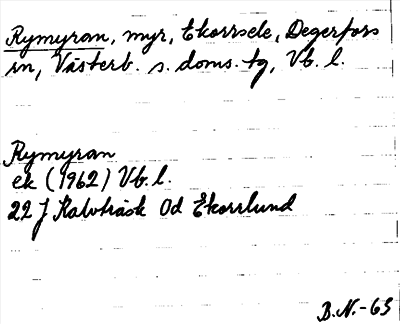 Rymyran, myr, Ekorrsele, Degerfors
sn, Västerb. s. doms. tg, Vb. l.
Rymyran
ek (1962) Vb. l.
22 J Kalvträsk 0d Ekorrlund
B.N.-63